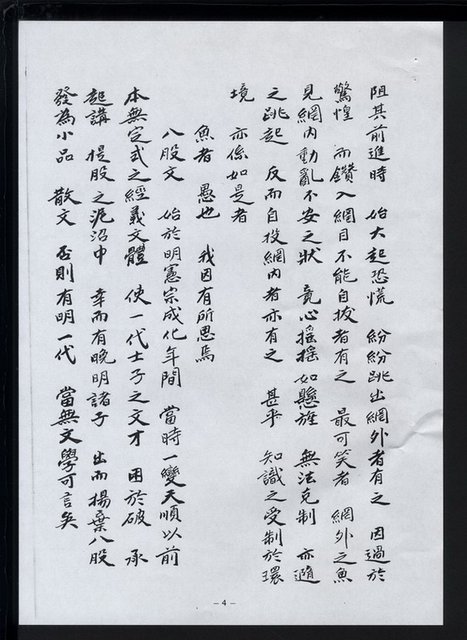 阻其前進時　始大起恐慌　紛紛跳出網外者有之　因過於
驚惶　而鑽入網目不能自拔者有之　最可笑者　網外之魚
見網內動亂不安之狀　竟心搖搖如懸旌　無法克制　亦隨
之跳起　反而自投網內者亦有之　甚乎　知識之受制於環
境　亦係如是者
魚者　愚也　我因有所思焉
八股文　始於明憲宗成化年間　當時一變天順以前
本無定式之經義文體　使一代士子之文才　困於破　承
起講　提股之泥沼中　幸而有晚明諸子　出而揚棄八股
發為小品　散文　否則有明一代　當無文學可言矣
-4-